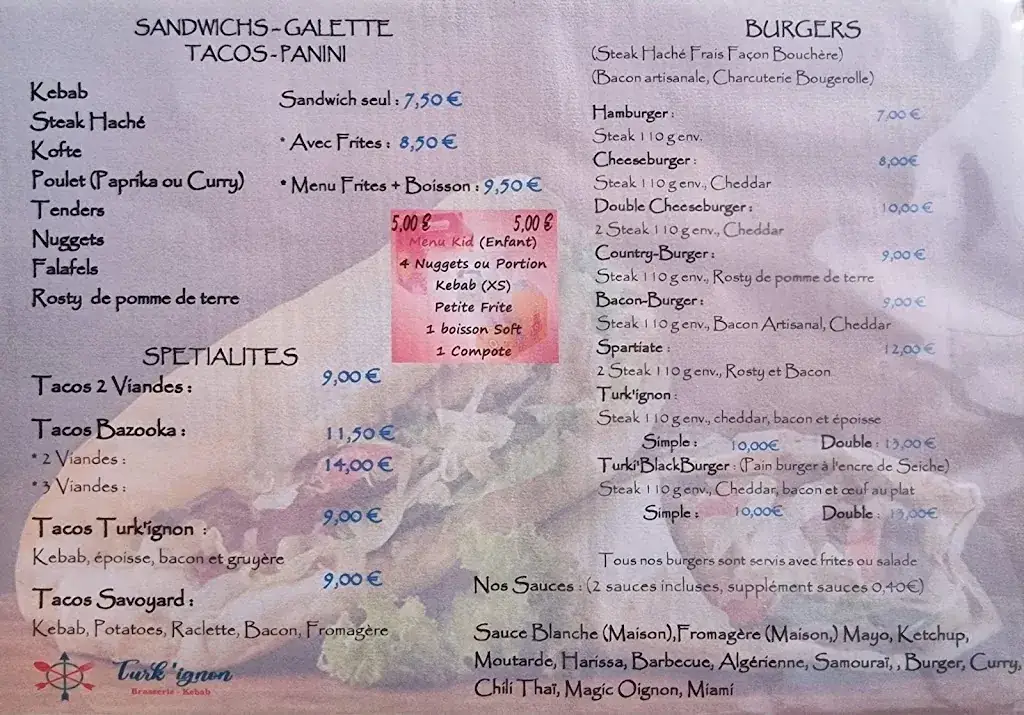 SANDWICHS-GALETTE
TACOS-PANINI
Kebab
Steak Haché
Kofte
Poulet (Paprika ou Curry)
Tenders
Nuggets
Falafels
Rosty de pomme de terre
Sandwich seul : 7,50 €
* Avec Frites : 8,50 €
* Menu Frites + Boisson : 9,50 €
5,00 € 5,00 €
Menu Kid (Enfant)
4 Nuggets ou Portion
Kebab (XS)
Petite Frite
1 boisson Soft
1 Compote
SPETIALITES
Tacos 2 Viandes : 9,00 €
Tacos Bazooka :
* 2 Viandes : 11,50 €
* 3 Viandes : 14,00 €
Tacos Turk'ignon : 9,00 €
Kebab, époisse, bacon et gruyère
Tacos Savoyard : 9,00 €
Kebab, Potatoes, Raclette, Bacon, Fromagère
Turk'ignon
Brasserie - Kebab
BURGERS
(Steak Haché Frais Façon Bouchère)
(Bacon artisanale, Charcuterie Bougerolle)
Hamburger : 7,00 €
Steak 110 g env.
Cheeseburger : 8,00€
Steak 110 g env., Cheddar
Double Cheeseburger : 10,00 €
2 Steak 110 g env., Cheddar
Country-Burger : 9,00 €
Steak 110 g env., Rosty de pomme de terre
Bacon-Burger : 9,00 €
Steak 110 g env., Bacon Artisanal, Cheddar
Spartiate : 12,00 €
2 Steak 110 g env., Rosty et Bacon
Turk'ignon :
Steak 110 g env., cheddar, bacon et époisse
Simple : 10,00€ Double : 13,00 €
Turki'BlackBurger : (Pain burger à l'encre de Seiche)
Steak 110 g env., Cheddar, bacon et œuf au plat
Simple : 10,00€ Double : 13,00€
Tous nos burgers sont servis avec frites ou salade
Nos Sauces : (2 sauces incluses, supplément sauces 0,40€)
Sauce Blanche (Maison),Fromagère (Maison,) Mayo, Ketchup,
Moutarde, Harissa, Barbecue, Algérienne, Samouraï, , Burger, Curry,
Chili Thaï, Magic Oignon, Miami